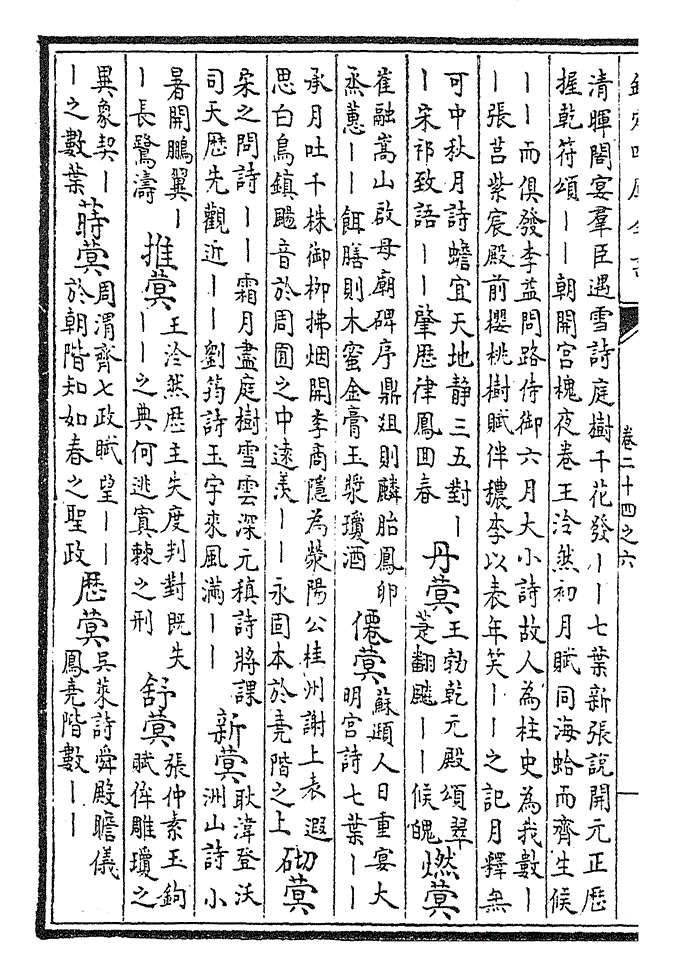 卷二十四之六
清暉閣宴羣臣遇雪詩庭樹千花發丨丨七葉新張說開元正歷
握乾符頌丨丨朝開宫槐夜卷王泠然初月賦同海蛤而齊生候
丨丨而俱發李益問路侍御六月大小詩故人為柱史為我數丨
丨張莒紫宸殿前櫻桃樹賦伴穠李以表年笑丨丨之記月釋無
可中秋月詩蟾宜天地靜三五對丨
丨宋祁致語丨丨肇歷律鳳回春
丹蓂
王勃乾元殿頌翠
萐翻飈丨丨候魄
燃蓂
崔融嵩山啟母廟碑序鼎俎則麟胎鳳卵
烝蕙丨丨餌膳則木蜜金膏玉漿瓊酒
僊蓂
蘇頲人日重宴大
明宫詩七葉丨丨
承月吐千株御栁拂烟開李商隱為滎陽公桂州謝上表遐
思白鳥鎮颺音於周囿之中遠羨丨丨永固本於堯階之上
砌蓂
宋之問詩丨丨霜月盡庭樹雪雲深元稹詩將課
司天歷先觀近丨丨劉筠詩玉宇來風滿丨丨
新蓂
耿湋登沃
洲山詩小
暑開鵬翼丨
丨長鷺濤
推蓂
王泠然歷主失度判對既失
丨丨之典何逃寘棘之刑
舒蓂
張仲素玉鉤
賦侔雕瓊之
異象契丨
丨之數葉
蒔蓂
周渭齊七政賦望丨丨
於朝階知如春之聖政
歷蓂
吳萊詩舜殿瞻儀
鳳堯階數丨丨